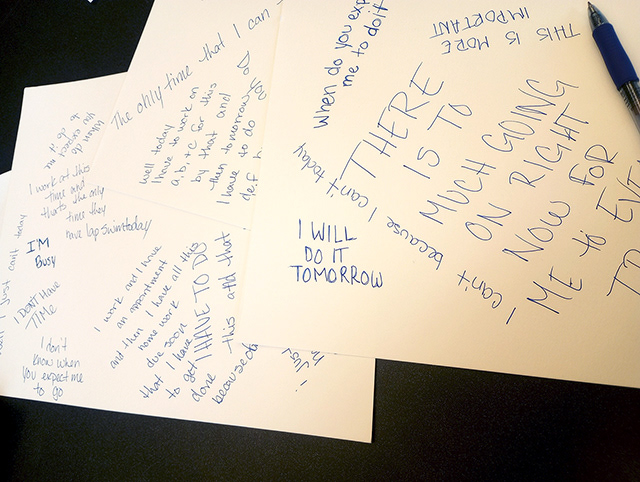 When do you exp
me to do it
THIS IS MORE
IMPORTANT
THERE
IS TO
MUCH GOING
ON RIGHT
NOW FOR
ME to EVE
TO
I can't because I can't today
I WILL
DO IT
TOMORROW
The only time that I can
well today
I have to work on
a, b, + c for this
by that and
then tomorrow
I have to do
d e, f
you
When do
you expect me
to do it
I work at this
time and
thats the only
time they
have lap swim today
I just can't today
I'M
Busy
I DON'T HAVE
TIMe
I don't
know when
you expect me
to go
I work and I have
an appointment
and then I have all this
home work
due soon
that I have
to get
done
I HAVE TO DO
this and that
because